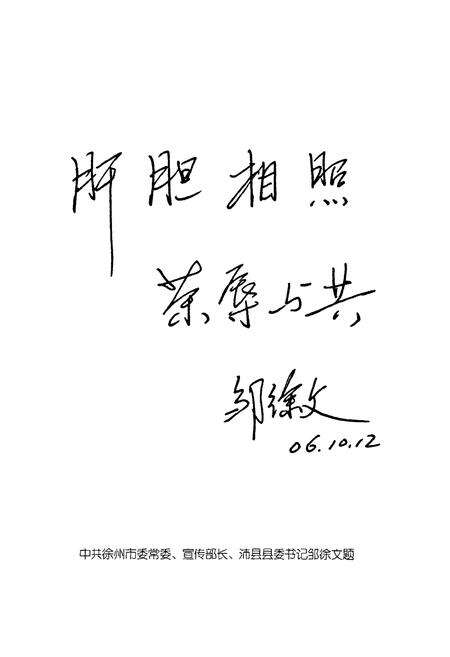 肝胆相照
荣辱与共
邹徐文
06.10.12
中共徐州市委常委、宣传部长、沛县县委书记邹徐文题